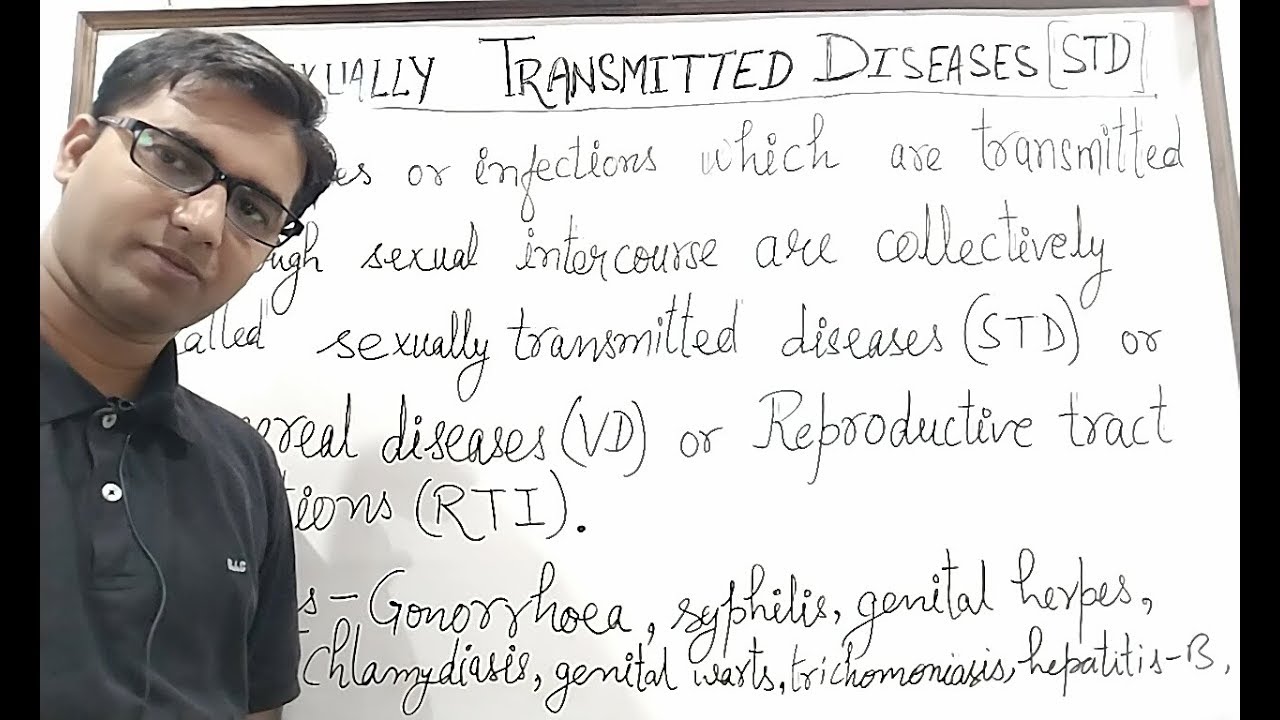 TRANSMITTED DISEASES [STD]
or infections which are transmitted
sexual intercourse are collectively
sexually transmitted diseases (STD) or
diseases (VD) or Reproductive tract
(RTI).
- Gonorrhoea, syphilis, genital herpes,
Chlamydiasis, genital warts, trichomoniasis, hepatitis-B,